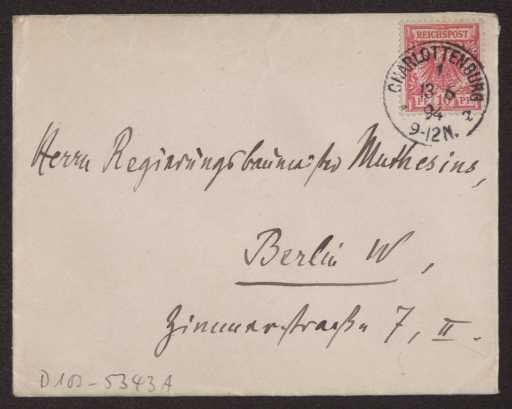 REICHSPOST
CHARLOTTENBURG
1
13 6
94
9-12N.
Herrn Regierungsbaumeister Muthesius,
Berlin W,
Zimmerstraße 7, II.
D 102-5343A